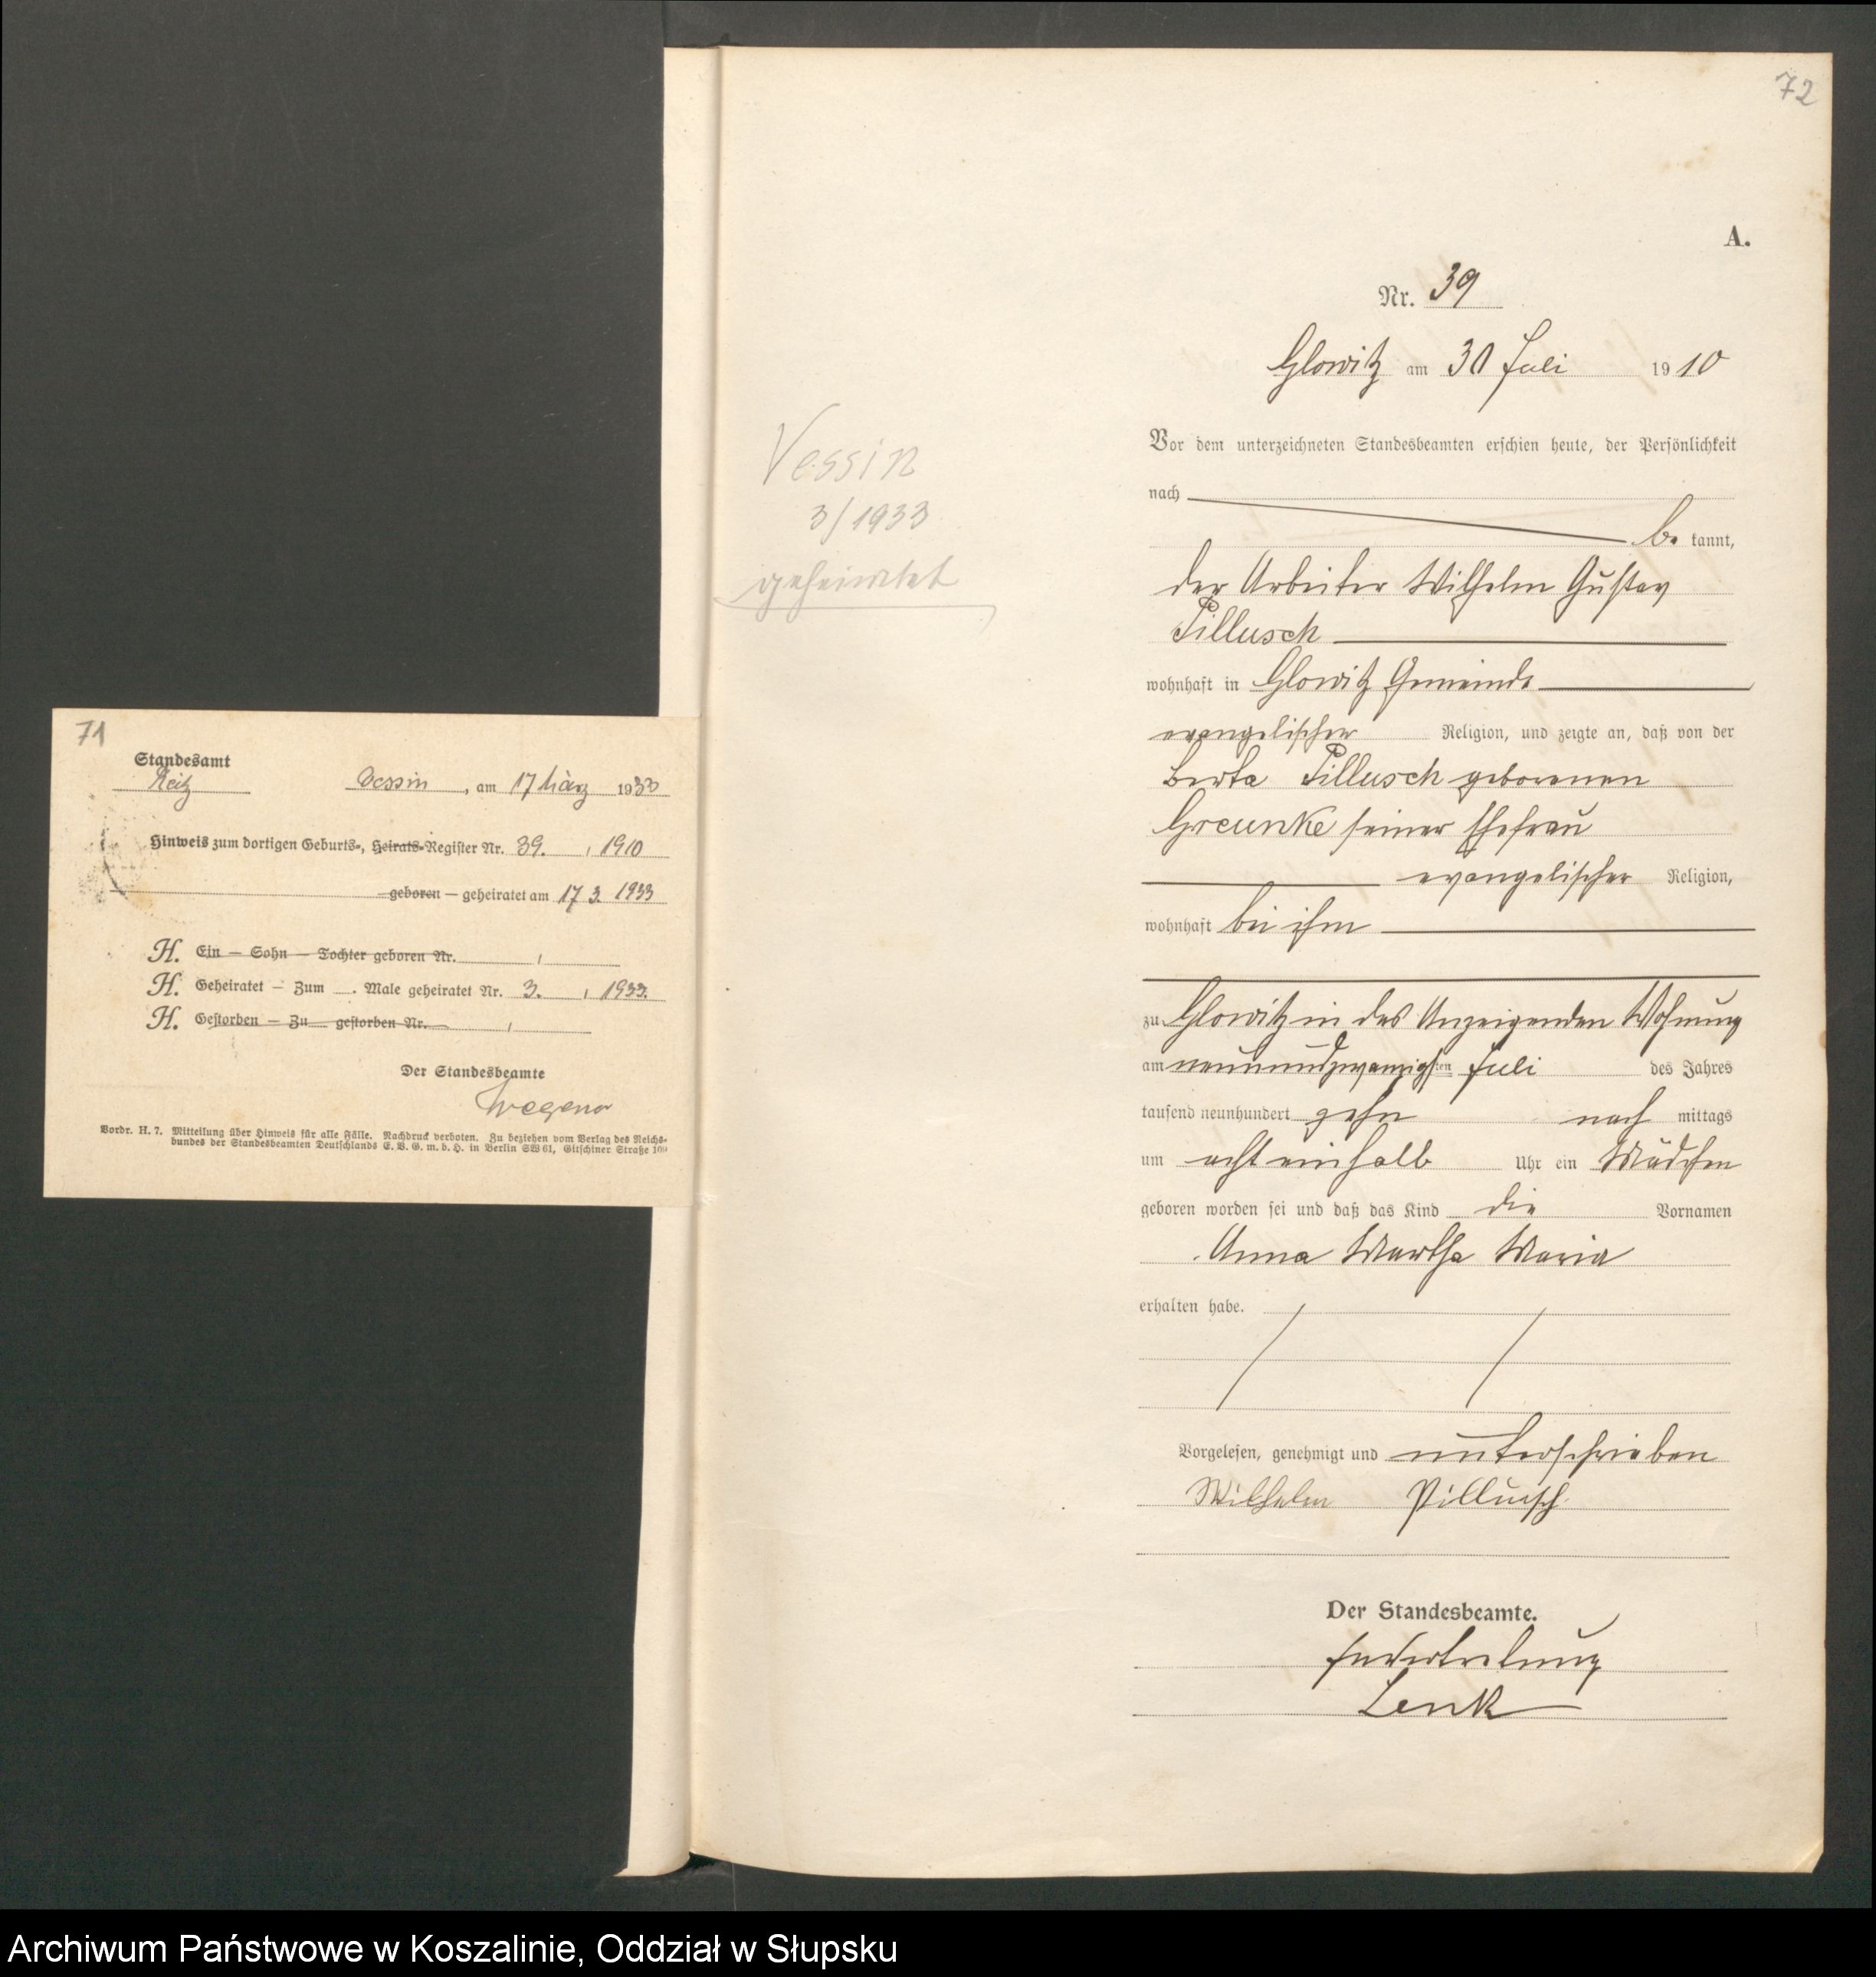 72
A.
Nr. 39
Glowitz am 30 Juli 1910
Vor dem unterzeichneten Standesbeamten erschien heute, der Persönlichkeit
nach
be kannt,
der Arbeiter Wilhelm Gustav
Pillusch
wohnhaft in Glowitz Gemeinde
evangelischer Religion, und zeigte an, daß von der
Berta Pillusch geborenen
Greunke seiner Ehefrau
evangelischer Religion,
wohnhaft bei ihm
zu Glowitz in des Anzeigenden Wohnung
am neunundzwanzigsten Juli des Jahres
tausend neunhundert zehn nach mittags
um acht einhalb Uhr ein Mädchen
geboren worden sei und daß das Kind die Vornamen
Anna Martha Maria
erhalten habe.
Vorgelesen, genehmigt und unterschrieben
Wilhelm Pillusch
Der Standesbeamte.
In Vertretung
Lenk
Vessin
3/1933
geheiratet
71
Standesamt
Vessin, am 17 März 1933
Hinweis zum dortigen Geburts-, Heirats-Register Nr. 39. , 1910
geboren — geheiratet am 17 3. 1933
H. Ein — Sohn — Tochter geboren Nr. ,
H. Geheiratet — Zum . Male geheiratet Nr. 3. , 1933.
H. Gestorben — Zu gestorben Nr. ,
Der Standesbeamte
Vordr. H. 7. Mitteilung über Hinweis für alle Fälle. Nachdruck verboten. Zu beziehen vom Verlag des Reichs-
bundes der Standesbeamten Deutschlands E. V. G. m. b. H. in Berlin SW 61, Gitschiner Straße 109
Archiwum Państwowe w Koszalinie, Oddział w Słupsku